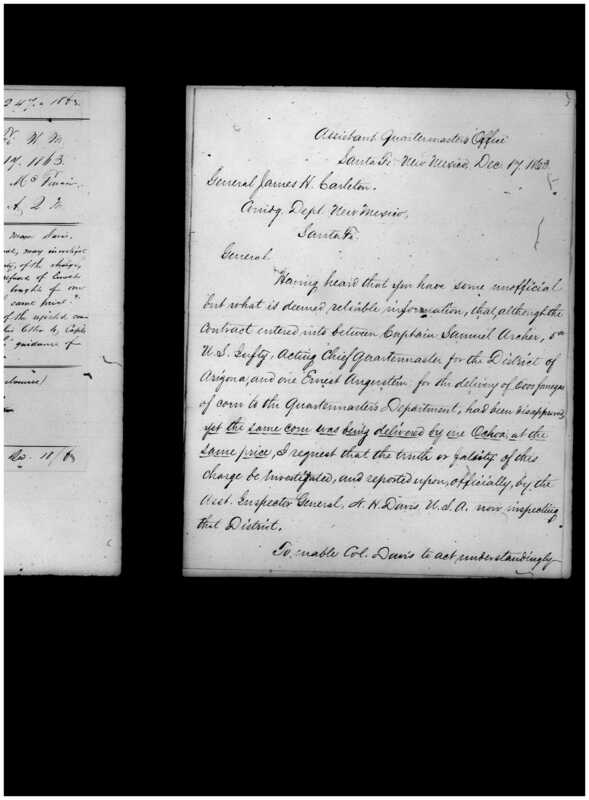 247. 1863
N. M.
17. 1863.
A. Q. M.
may investigate
of the charge,
bought of one
same price".
of the
guidance of
3
Assistant Quartermasters Office
Santa Fe New Mexico, Dec. 17. 1863
General James H. Carleton.
Comdg. Dept. New Mexico,
Santa Fe.
General
Having heard that you have some unofficial
but what is deemed reliable information, that although the
Contract entered into between Captain Samuel Archer, 5th
U.S. Infty, Acting Chief Quartermaster for the District of
Arizona, and one Ernest Angerstein, for the delivery of 6000 fanegas
of corn to the Quartermasters Department, had been disapproved
yet the same corn was being delivered by one Ochoa, at the
same price, I request that the truth or falsity of this
charge be investigated, and reported upon, officially, by the
Asst. Inspector General, N. H. Davis U.S.A. now inspecting
that District.
To enable Col. Davis to act understandingly